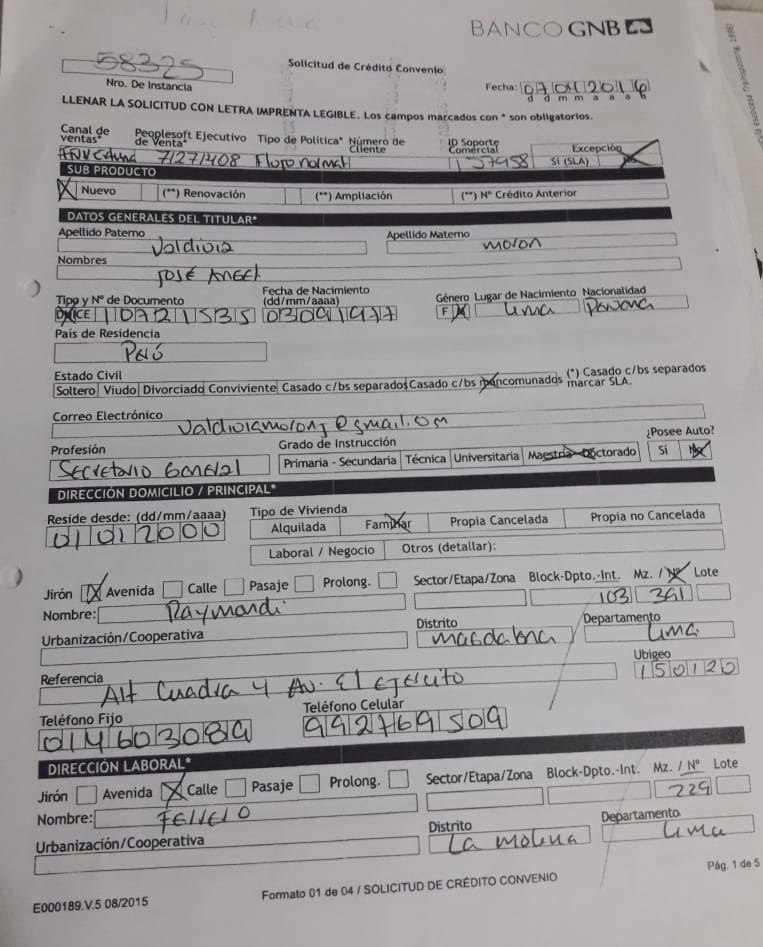 BANCO GNB
58325
Solicitud de Crédito Convenio
Nro. De Instancia
Fecha: 07042016
d d m m a a a a
LLENAR LA SOLICITUD CON LETRA IMPRENTA LEGIBLE. Los campos marcados con * son obligatorios.
Canal de ventas* Peoplesoft Ejecutivo de Venta* Tipo de Política* Número de Cliente ID Soporte Comercial Excepción
7/27/408 Flujo normal 137958 SI (SLA) No
SUB PRODUCTO
X Nuevo (**) Renovación (**) Ampliación (**) Nº Crédito Anterior
DATOS GENERALES DEL TITULAR*
Apellido Paterno Apellido Materno
Valdivia moron
Nombres
JOSÉ ANGEL
Tipo y Nº de Documento Fecha de Nacimiento (dd/mm/aaaa) Género Lugar de Nacimiento Nacionalidad
CE 110721535 03091977 F Lima Peruana
País de Residencia
Perú
Estado Civil
Soltero Viudo Divorciado Conviviente Casado c/bs separados Casado c/bs mancomunados (*) Casado c/bs separados marcar SLA.
Correo Electrónico
valdiviamoronj@gmail.com
Profesión Grado de Instrucción ¿Posee Auto?
Secretario General Primaria - Secundaria Técnica Universitaria Maestría - Doctorado Si No
DIRECCIÓN DOMICILIO / PRINCIPAL*
Reside desde: (dd/mm/aaaa) Tipo de Vivienda
01012000 Alquilada Familiar Propia Cancelada Propia no Cancelada
Laboral / Negocio Otros (detallar):
Jirón X Avenida Calle Pasaje Prolong. Sector/Etapa/Zona Block-Dpto.-Int. Mz. / Nº Lote
Nombre: Raymondi 103 391
Urbanización/Cooperativa Distrito Departamento
magdalena Lima
Referencia Ubigeo
Alt Cuadra 4 Av. El Ejercito 150120
Teléfono Fijo Teléfono Celular
014603089 992769509
DIRECCIÓN LABORAL*
Jirón Avenida X Calle Pasaje Prolong. Sector/Etapa/Zona Block-Dpto.-Int. Mz. / Nº Lote
Nombre: 229
Urbanización/Cooperativa Distrito Departamento
La Molina Lima
E000189.V.5 08/2015 Formato 01 de 04 / SOLICITUD DE CRÉDITO CONVENIO Pág. 1 de 5